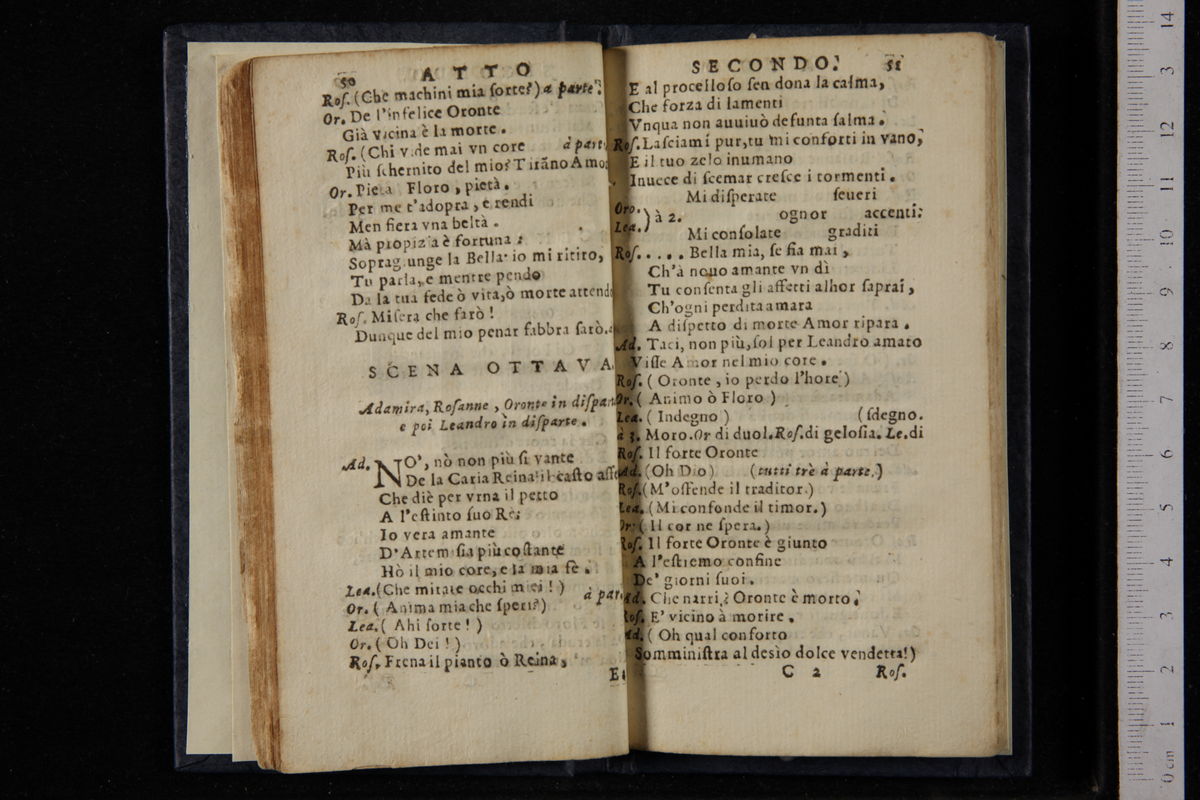 50 ATTO
Roſ. (Che machini mia ſorte?) à parte.
Or. De l'infelice Oronte
Già vicina è la morte.
Roſ. (Chi vide mai vn core à parte
Più ſchernito del mio? Tiranno Amor
Or. Pietà Floro, pietà.
Per me t'adopra, e rendi
Men fiera vna beltà.
Mà propizia è fortuna:
Sopragiunge la Bella: io mi ritiro,
Tu parla, e mentre pendo
Da la tua fede ò vita, ò morte attendo
Roſ. Miſera che farò!
Dunque del mio penar fabbra ſarò.
SCENA OTTAVA.
Adamira, Roſanne, Oronte in diſparte
e poi Leandro in diſparte.
Ad. NO', nò non più ſi vante
De la Caria Reina il caſto affe
Che diè per vrna il petto
A l'eſtinto ſuo Re;
Io vera amante
D'Artemiſia più coſtante
Hò il mio core, e la mia fè.
Lea. (Che mirate occhi miei!)
Or. (Anima mia che ſperi?) à par
Lea. (Ahi ſorte!)
Or. (Oh Dei!)
Roſ. Frena il pianto ò Reina,
E
SECONDO. 51
E al procelloſo ſen dona la calma,
Che forza di lamenti
Vnqua non auuiuò defunta ſalma.
Roſ. Laſciami pur, tu mi conforti in vano,
E il tuo zelo inumano
Inuece di ſcemar creſce i tormenti.
Mi diſperate ſeueri
Oro. Lea. } à 2. ognor accenti.
Mi conſolate graditi
Roſ. . . . . Bella mia, ſe fia mai,
Ch'à nouo amante vn dì
Tu conſenta gli affetti alhor ſaprai,
Ch'ogni perdita amara
A diſpetto di morte Amor ripara.
Ad. Taci, non più, ſol per Leandro amato
Viſſe Amor nel mio core.
Roſ. (Oronte, io perdo l'hore)
Or. (Animo ò Floro)
Lea. (Indegno) (ſdegno.
à 3. Moro. Or di duol. Roſ. di geloſia. Le. di
Roſ. Il forte Oronte
Ad. (Oh Dio) (tutti trè à parte.)
Roſ. (M'offende il traditor.)
Lea. (Mi confonde il timor.)
Or. (Il cor ne ſpera.)
Roſ. Il forte Oronte è giunto
A l'eſtremo confine
De' giorni ſuoi.
Ad. Che narri? Oronte è morto?
Roſ. E' vicino à morire.
Ad. (Oh qual conforto
Somminiſtra al desìo dolce vendetta!)
C 2 Roſ.
0 cm 1 2 3 4 5 6 7 8 9 10 11 12 13 14